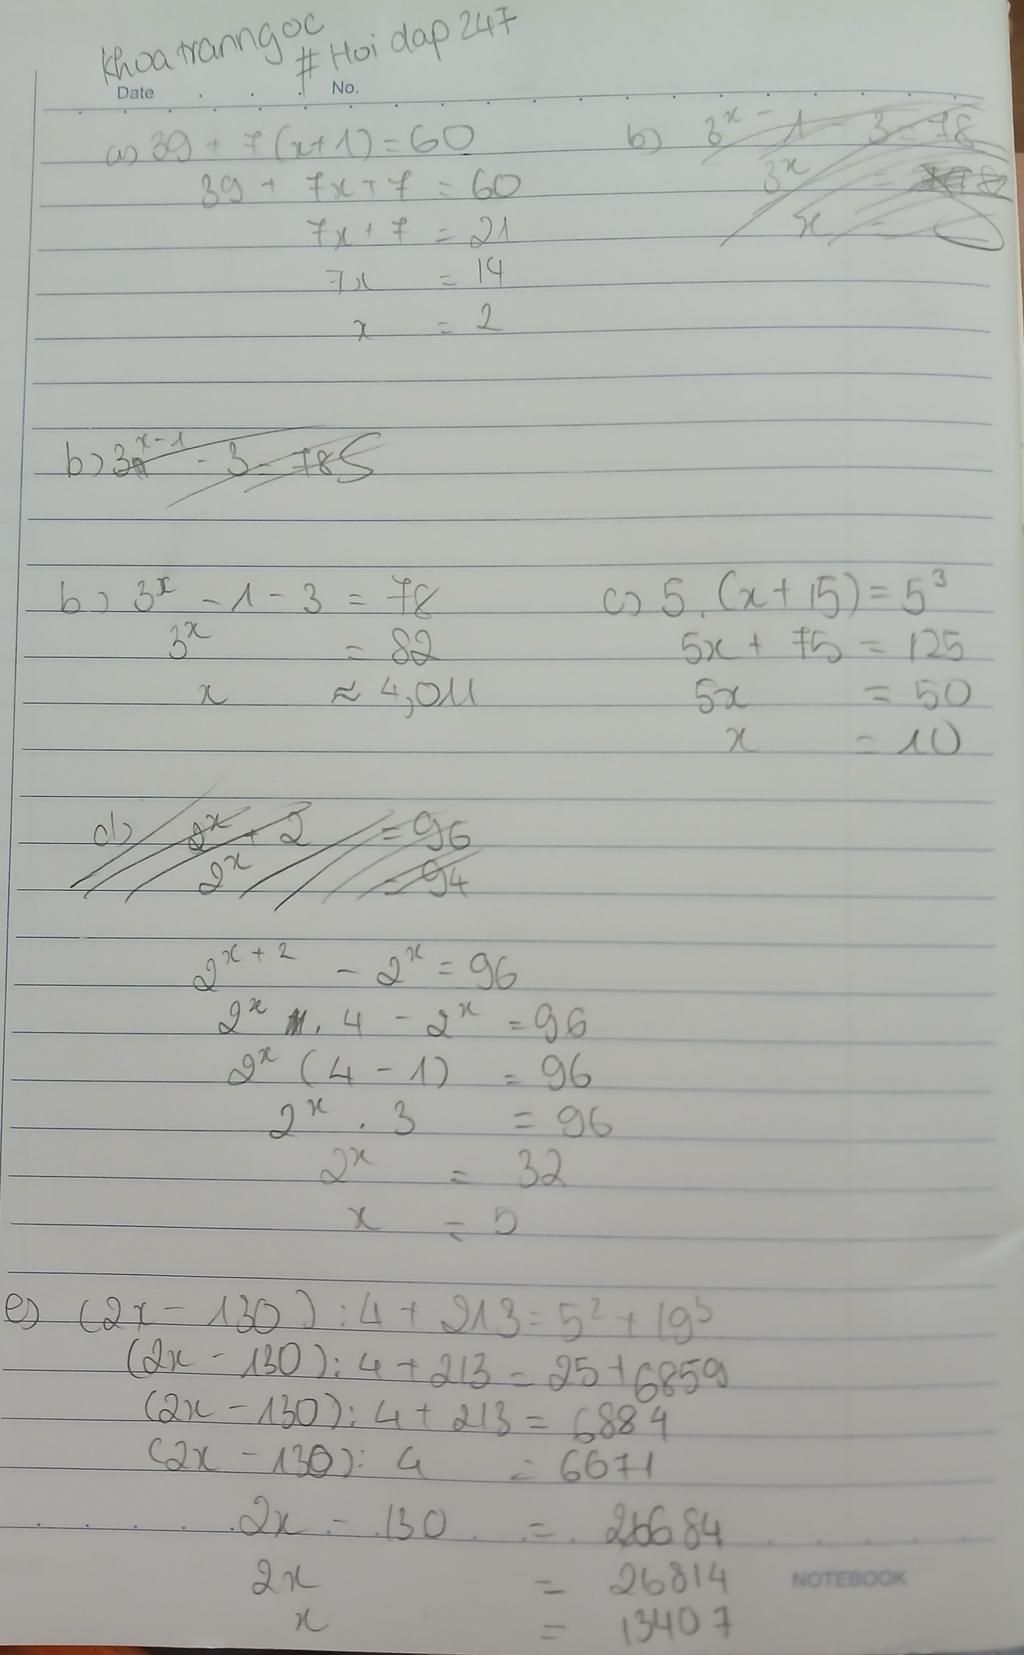 Khoatranngoc
#Hoidap247
Date No.
a) 39 + 7(x+1) = 60
39 + 7x + 7 = 60
7x + 7 = 21
7x = 14
x = 2
b) 3ˣ - 1 - 3 = 78
3ˣ =
x =
b) 3ˣ⁻¹ - 3 = 78
b) 3ˣ - 1 - 3 = 78
3ˣ = 82
x ≈ 4,011
c) 5.(x + 15) = 5³
5x + 75 = 125
5x = 50
x = 10
d) 2ˣ + 2 = 96
2ˣ = 94
2ˣ⁺² - 2ˣ = 96
2ˣ . 4 - 2ˣ = 96
2ˣ (4 - 1) = 96
2ˣ . 3 = 96
2ˣ = 32
x = 5
e) (2x - 130) : 4 + 213 = 5² + 19³
(2x - 130) : 4 + 213 = 25 + 6859
(2x - 130) : 4 + 213 = 6884
(2x - 130) : 4 = 6671
2x - 130 = 26684
2x = 26814
x = 13407
NOTEBOOK